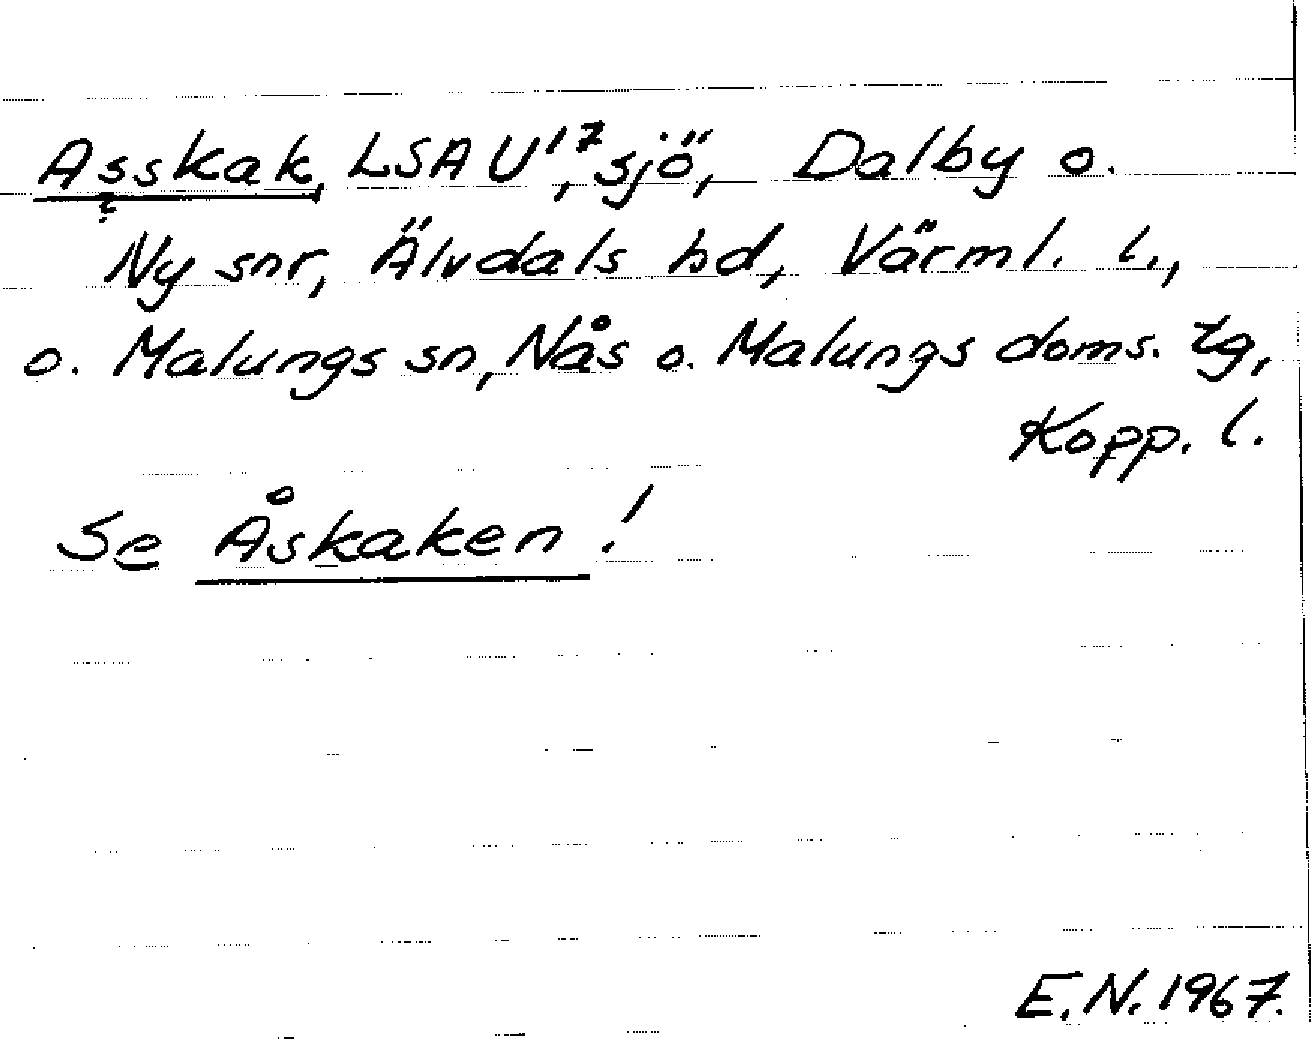 Asskak, LSA U'⁷, sjö, Dalby o.
Ny snr, Älvdals hd, Värml. l.,
o. Malungs sn, Nås o. Malungs doms. tg,
Kopp. l.
Se Åskaken!
E.N. 1967.